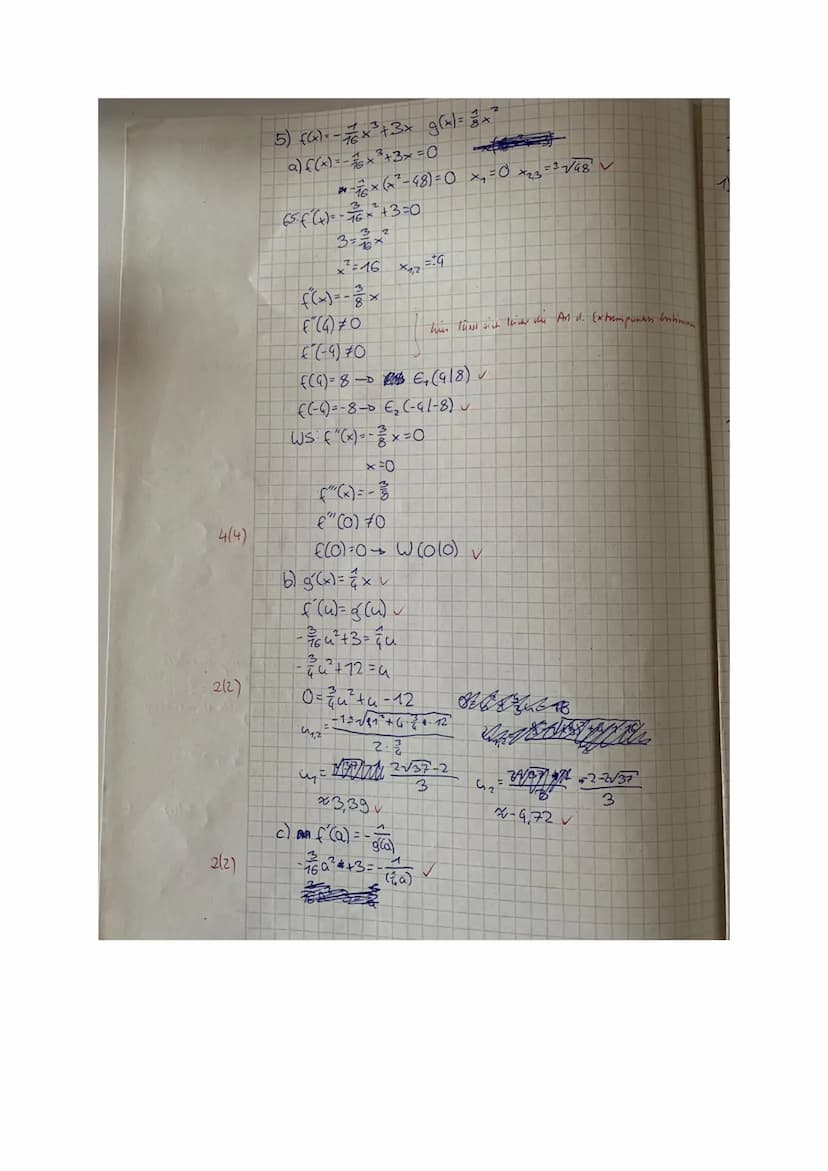 5) f(x)=-1/16x³+3x g(x)=1/8x²
a) f(x)=-1/16x³+3x=0
-1/16x(x²-48)=0 x₁=0 x₂,₃=±√48 ✓
ES: f'(x)=-3/16x²+3=0
3=3/16x²
x²=16 x₁,₂=±4
f''(x)=-3/8x
f''(4)≠0
hier lässt sich die Art d. Extrempunkte bestimmen
f''(-4)≠0
f(4)=8 → E₁(4|8) ✓
f(-4)=-8 → E₂(-4|-8) ✓
WS: f''(x)=-3/8x=0
x=0
f'''(x)=-3/8
f'''(0)≠0
4(4)
f(0)=0 → W(0|0) ✓
b) g'(x)=1/4x ✓
f'(u)=g'(u) ✓
-3/16u²+3=1/4u
-3/4u²+12=u
2(2)
0=3/4u²+u-12
u₁,₂=(-1±√(1²+4·3/4·12))/(2·3/4)
u₁=(2√37-2)/3 u₂=(-2-2√37)/3
≈3,39 ✓ ≈-4,72 ✓
c) f'(a)=-1/g'(a)
2(2)
-3/16a²+3=-1/(1/4a) ✓